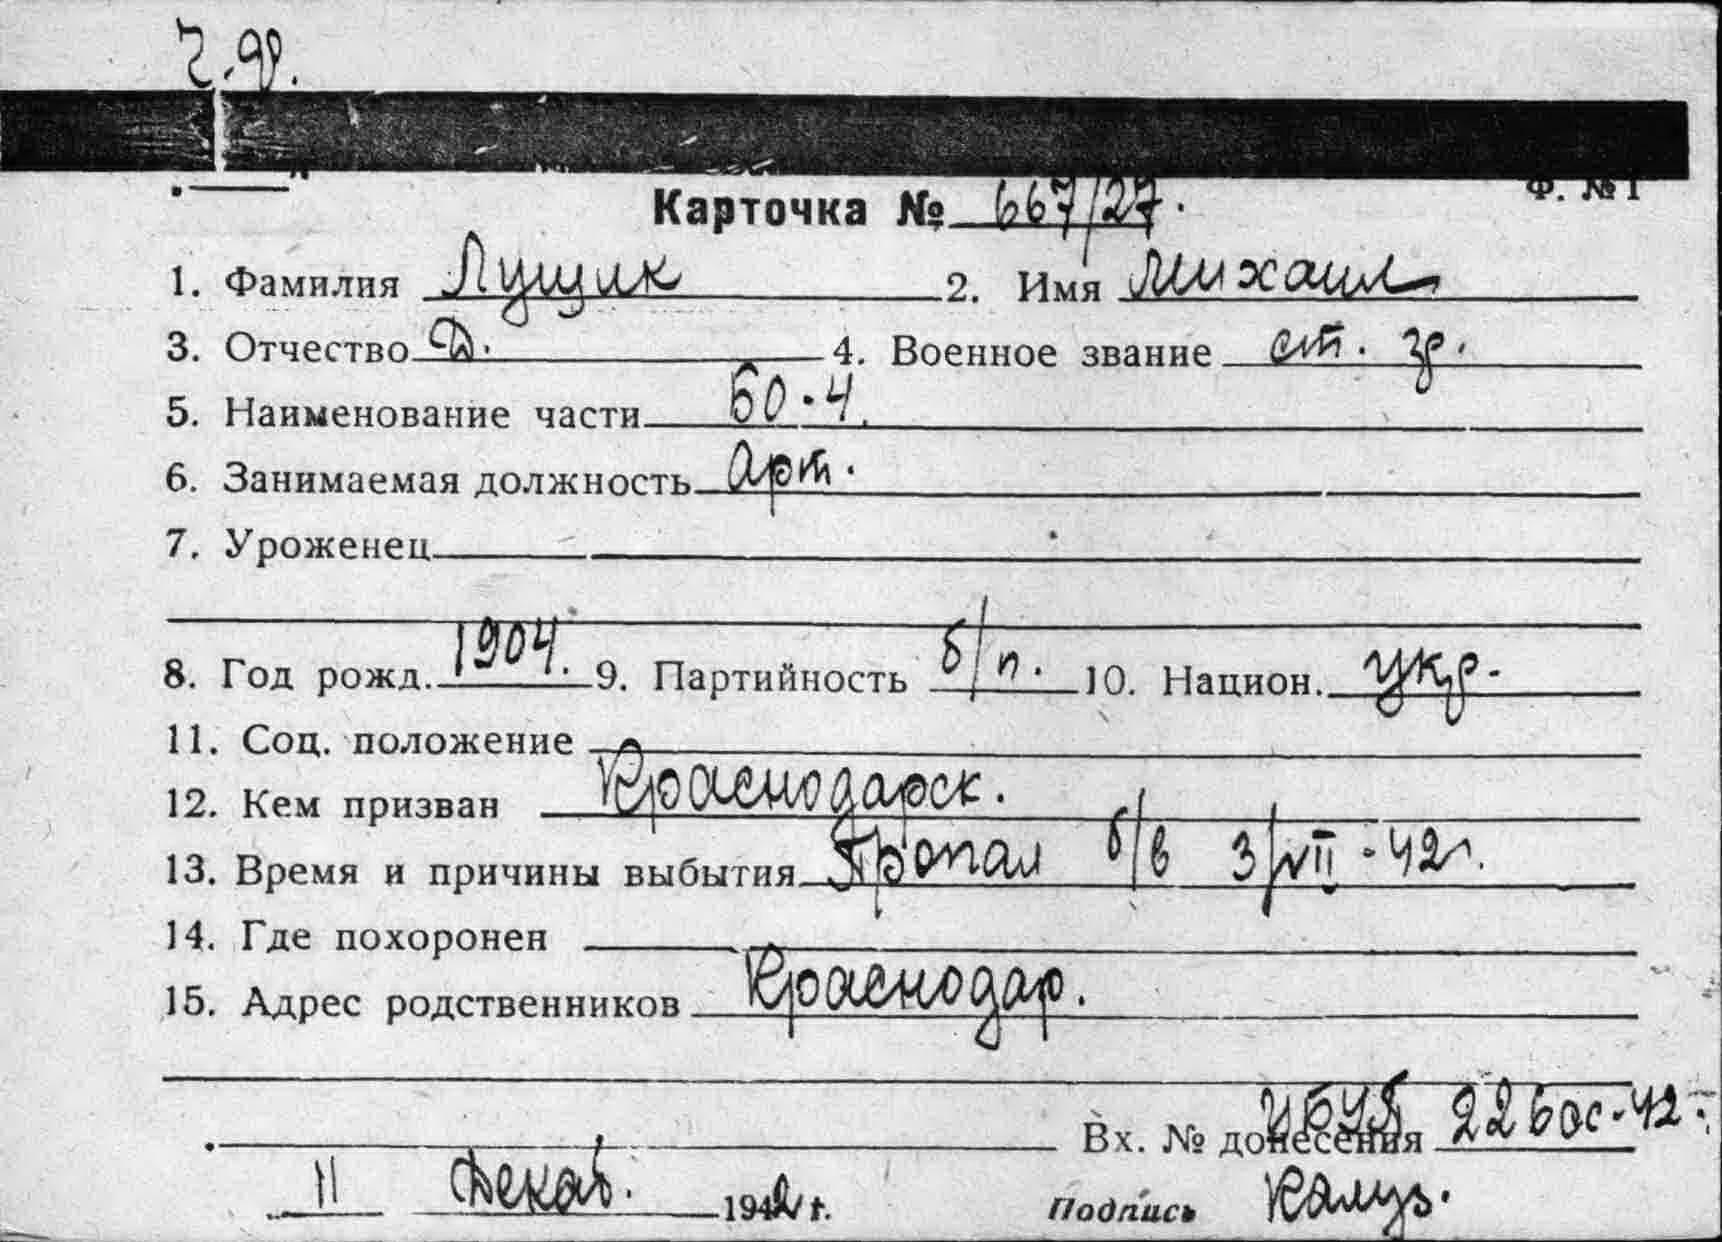 Ч.Ф.
Ф. № 1
Карточка № 667/27.
1. Фамилия Лущик 2. Имя Михаил
3. Отчество Д. 4. Военное звание ст. гр.
5. Наименование части 60.4.
6. Занимаемая должность Арт.
7. Уроженец
8. Год рожд. 1904. 9. Партийность б/п. 10. Национ. укр.
11. Соц. положение
12. Кем призван Краснодарск.
13. Время и причины выбытия Пропал б/в 3/VII-42г.
14. Где похоронен
15. Адрес родственников Краснодар.
Вх. № донесения 2260с-42.
11 Декаб. 1942 г. Подпись